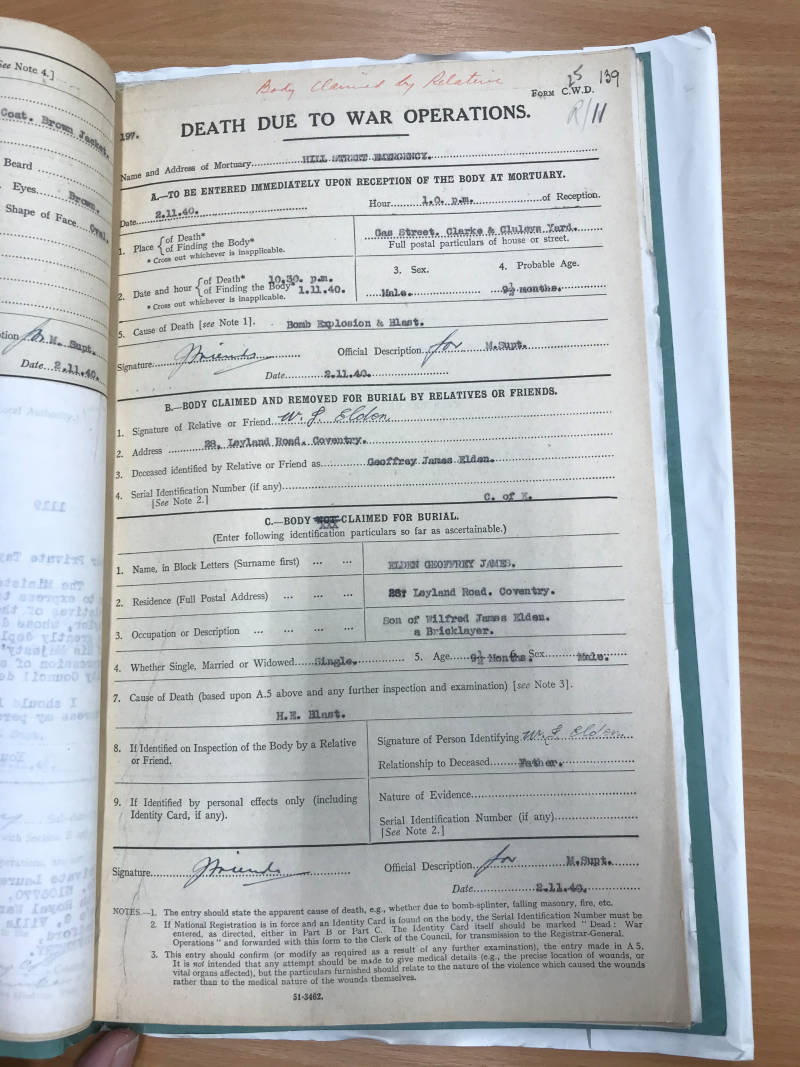 See Note 4.]
Coat. Brown Jacket.
Beard
Eyes
Brown.
Shape of Face
Oval.
M. Supt.
Date
2.11.40.
1119
Body Claimed by Relative
FORM C.W.D.
25
139
R/11
197.
DEATH DUE TO WAR OPERATIONS.
Name and Address of Mortuary HILL STREET EMERGENCY.
A.—TO BE ENTERED IMMEDIATELY UPON RECEPTION OF THE BODY AT MORTUARY.
Date 2.11.40. Hour 1.0. p.m. of Reception.
1. Place {of Death* / of Finding the Body*
* Cross out whichever is inapplicable.
Gas Street, Clarke & Cluleys Yard.
Full postal particulars of house or street.
2. Date and hour {of Death* 10.30. p.m.
of Finding the Body* 1.11.40.
* Cross out whichever is inapplicable.
3. Sex.
Male.
4. Probable Age.
9½ months.
5. Cause of Death [see Note 1]. Bomb Explosion & Blast.
Signature Official Description for M.Supt.
Date 2.11.40.
B.—BODY CLAIMED AND REMOVED FOR BURIAL BY RELATIVES OR FRIENDS.
1. Signature of Relative or Friend W. J. Elden
2. Address 28, Leyland Road. Coventry.
3. Deceased identified by Relative or Friend as Geoffrey James Elden.
4. Serial Identification Number (if any)
[See Note 2.]
C. of E.
C.—BODY NOT CLAIMED FOR BURIAL.
XXX
(Enter following identification particulars so far as ascertainable.)
1. Name, in Block Letters (Surname first) ... ... ELDEN GEOFFREY JAMES.
2. Residence (Full Postal Address) ... ... ... 28, Leyland Road. Coventry.
3. Occupation or Description ... ... ... ... Son of Wilfred James Elden.
a Bricklayer.
4. Whether Single, Married or Widowed Single. 5. Age 9½ Months. 6. Sex Male.
7. Cause of Death (based upon A.5 above and any further inspection and examination) [see Note 3].
H.E. Blast.
8. If Identified on Inspection of the Body by a Relative or Friend.
Signature of Person Identifying W. J. Elden
Relationship to Deceased Father.
9. If Identified by personal effects only (including Identity Card, if any).
Nature of Evidence
Serial Identification Number (if any)
[See Note 2.]
Signature Official Description for M.Supt.
Date 2.11.40.
NOTES.—1. The entry should state the apparent cause of death, e.g., whether due to bomb-splinter, falling masonry, fire, etc.
2. If National Registration is in force and an Identity Card is found on the body, the Serial Identification Number must be
entered, as directed, either in Part B or Part C. The Identity Card itself should be marked "Dead: War
Operations" and forwarded with this form to the Clerk of the Council, for transmission to the Registrar-General.
3. This entry should confirm (or modify as required as a result of any further examination), the entry made in A 5.
It is not intended that any attempt should be made to give medical details (e.g., the precise location of wounds, or
vital organs affected), but the particulars furnished should relate to the nature of the violence which caused the wounds
rather than to the medical nature of the wounds themselves.
51-3462.